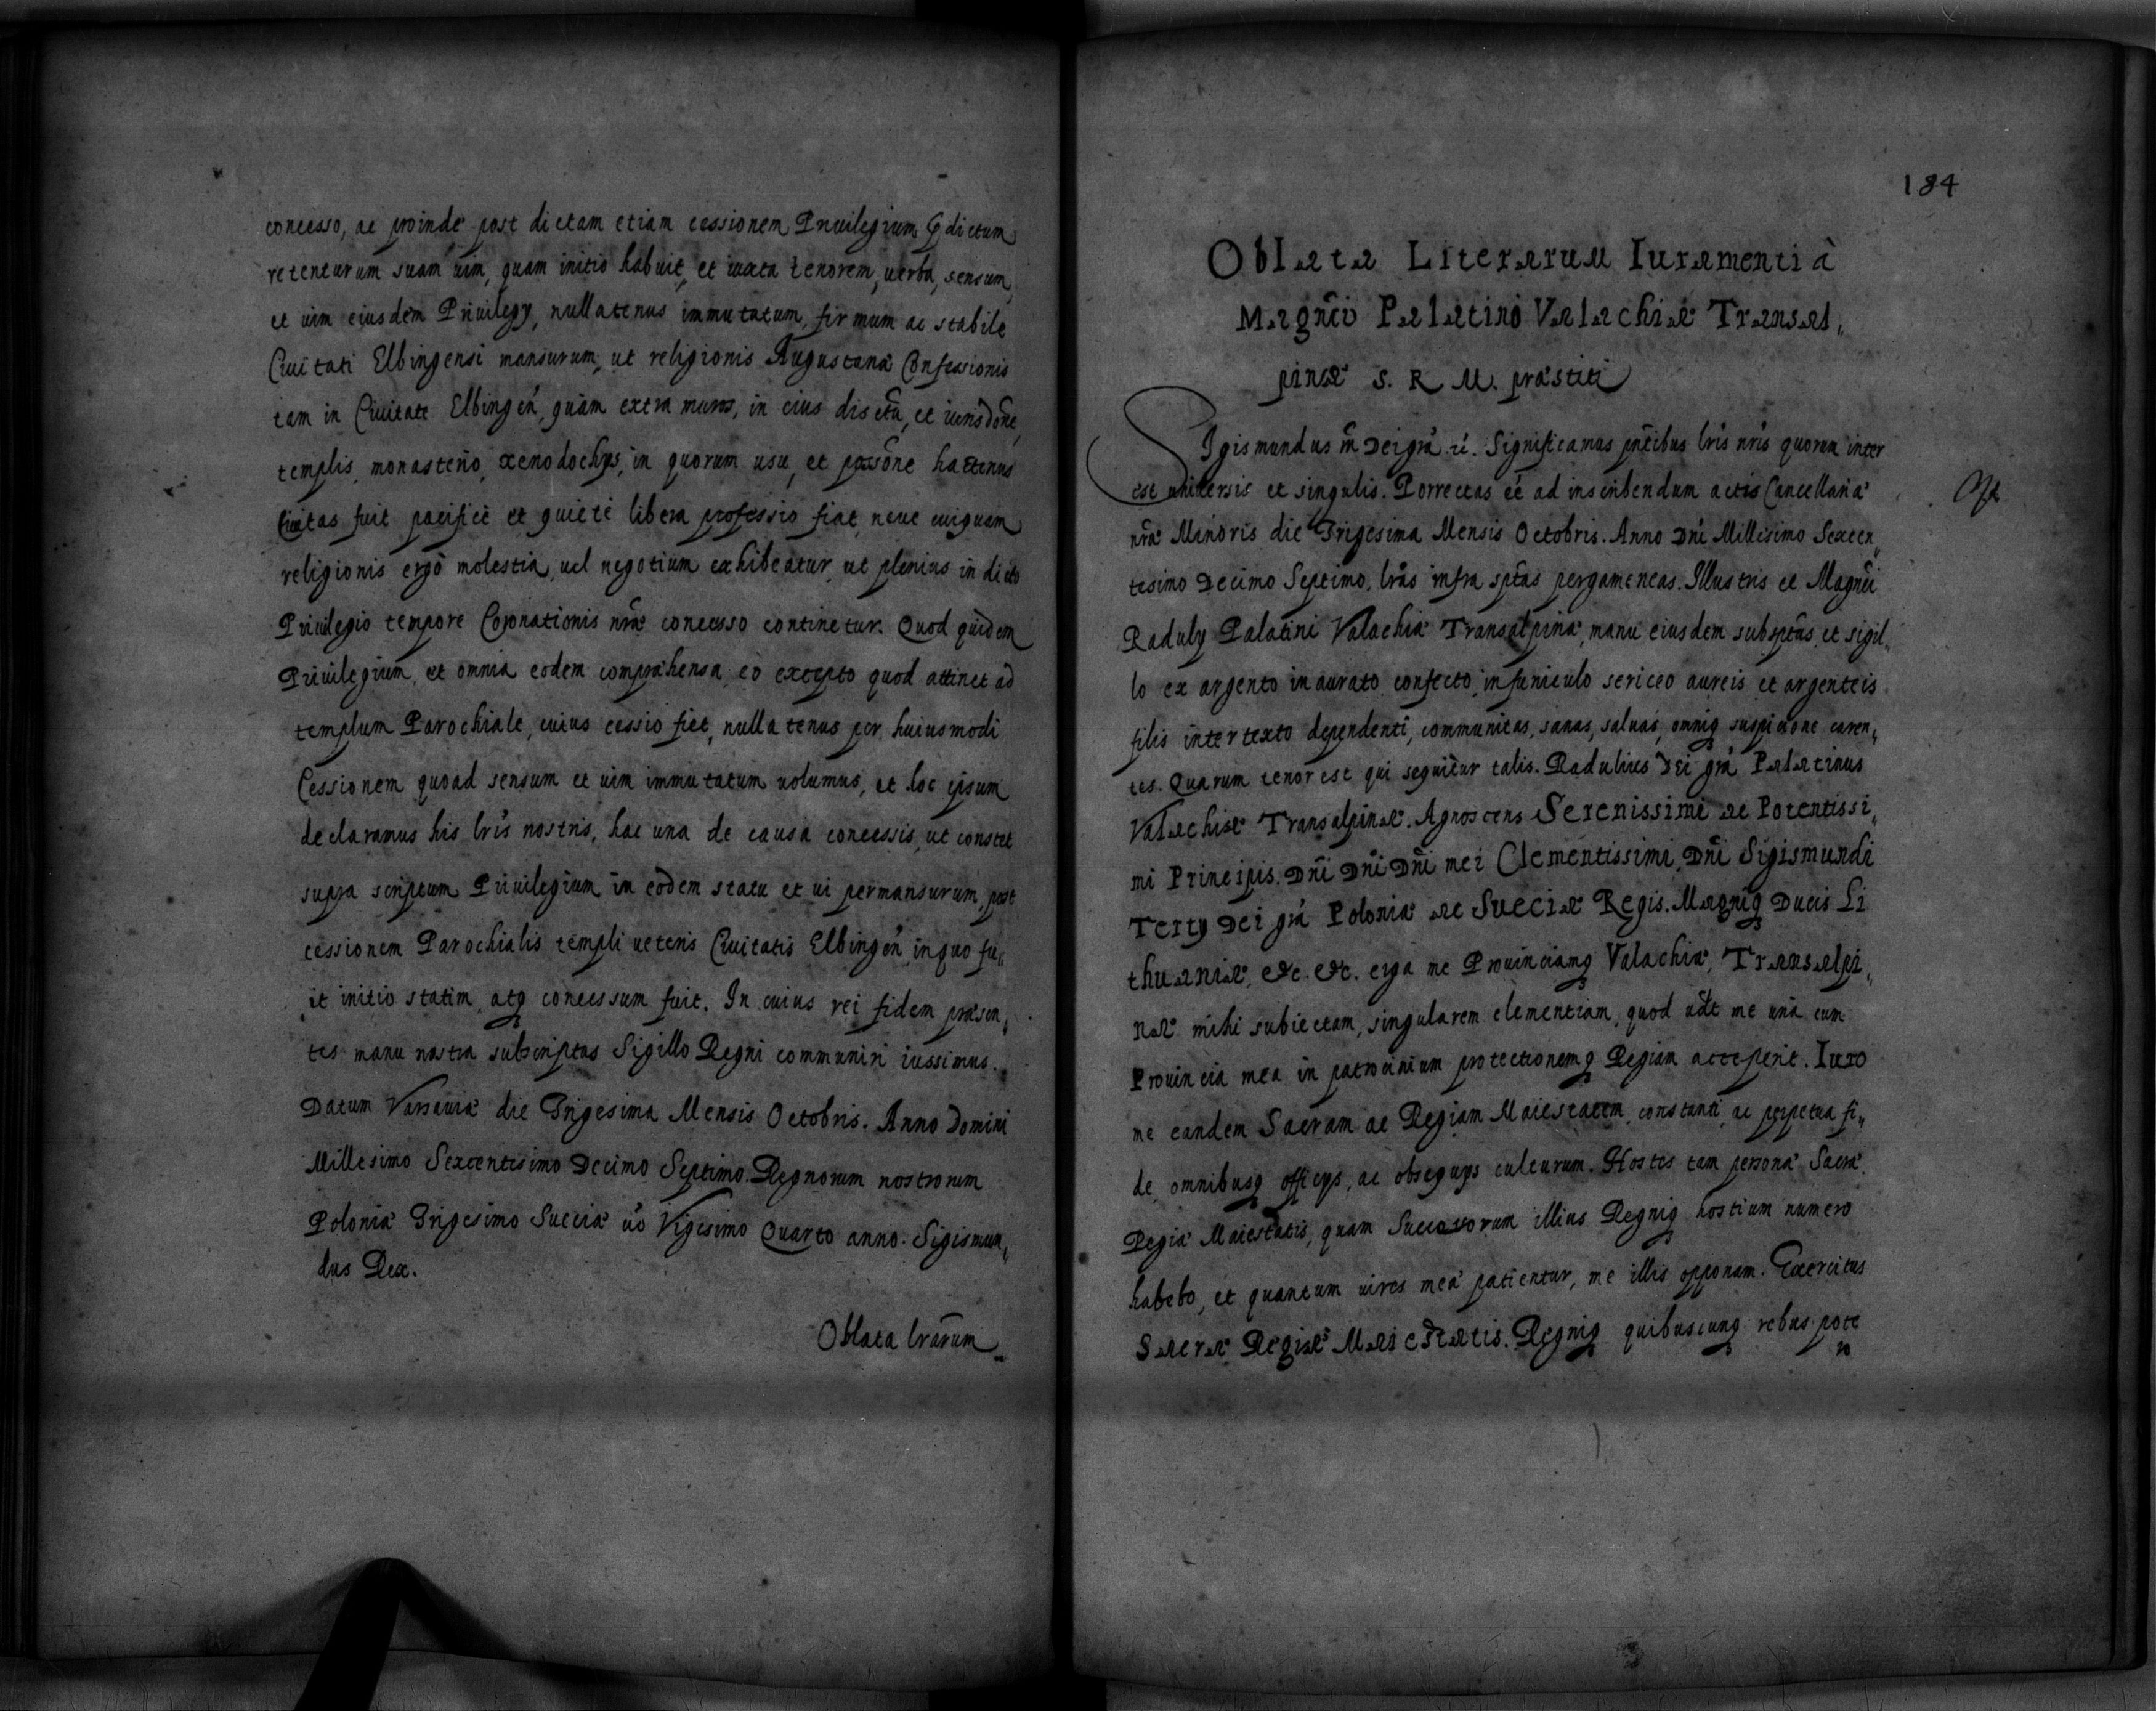 concesso, ac proinde post dictam etiam cessionem Priuilegium pdictum
retenturum suam uim, quam initio habuit, et iuxta tenorem, uerba, sensum,
et uim eiusdem Priuilegy, nullatenus immutatum, firmum ac stabile
Ciuitati Elbingensi mansurum, ut religionis Augustanæ Confessionis
tam in Ciuitate Elbingeń, quàm extra muros, in eius distctũ, et iurisdõne,
templis, monasterio, xenodochys, in quorum usu, et possõne hactenus
Ciuitas fuit pacificè et quietè libera professio fiat, neue cuiquam
religionis ergò molestia, uel negotium exhibeatur, ut plenius in dicto
Priuilegio tempore Coronationis nræ concesso continetur. Quod quidem
Priuilegium, et omnia eodem compræhensa, eo excepto quod attinet ad
templum Parochiale, cuius cessio fiet, nullatenus per huiusmodi
Cessionem quoad sensum et uim immutatum uolumus, et hoc ipsum
declaramus his lris nostris, hac una de causa concessis, ut constet
supra scriptum Priuilegium in eodem statu et ui permansurum, post
cessionem Parochialis templi ueteris Ciuitatis Elbingeń, in quo fu„
it initio statim, atq concessum fuit. In cuius rei fidem præsen„
tes manu nostra subscriptas Sigillo Regni communiri iussimus.
Datum Varsauiæ die Trigesima Mensis Octobris. Anno Domini
Millesimo Sexcentesimo Decimo Septimo. Regnorum nostrorum
Poloniæ Trigesimo Sueciæ uo Vigesimo Quarto anno. Sigismun„
dus Rex.
Oblata lrarum
184
Oblata Literarum Iuramenti à
Magnci Palatino Valachiæ Transal„
pinæ S. R. M. præstiti
Sigismundus m Dei gra. Significamus pntibus lris nris quorum inter
est uniuersis et singulis. Porrectas eé ad inscribendum actis Cancellariæ
nræ Minoris die Trigesima Mensis Octobris. Anno Dni Millesimo Sexcen„
tesimo Decimo Septimo, lras infra sptas pergameneas. Illustris et Magnci
Raduly Palatini Valachiæ Transalpinæ, manu eiusdem subsptas, et sigil„
lo ex argento inaurato confecto, in funiculo sericeo aureis et argenteis
filis intertexto dependenti, communitas, sanas, saluas, omniq suspicione caren„
tes. Quarum tenor est qui sequitur talis. Radulius Dei gra Palatinus
Valachiæ Transalpinæ. Agnoscens Serenissimi ac Potentissi„
mi Principis. Dni Dni Dni mei Clementissimi, Dni Sigismundi
Terty Dei gra Poloniæ ac Sueciæ Regis. Magniq Ducis Li
thuaniæ, etc. etc. erga me Prouinciamq Valachiæ, Transalpi„
næ mihi subiectam, singularem clementiam, quod udt me unà cum
Prouincia mea in patrocinium protectionemq Regiam acceperit. Iuro
me eandem Sacram ac Regiam Maiestatem, constanti, ac perpetua fi„
de, omnibusq officys, ac obsequys culturum. Hostes tam personæ Sacræ
Regiæ Maiestatis, quam Successorum illius Regniq hostium numero
habebo, et quantum uires meæ patientur, me illis opponam. Exercitus
Sacræ Regiæ Maiestatis. Regniq quibuscunq rebus pote
ro